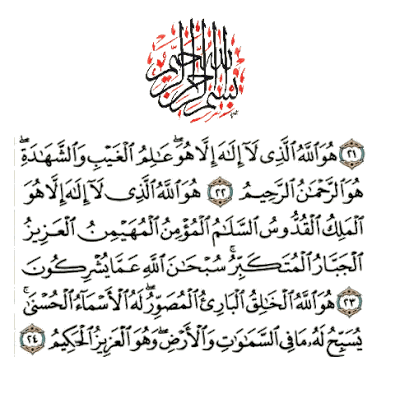 بسم الله الرحمن الرحيم
﴿٢١﴾ هُوَ اللَّهُ الَّذِي لَا إِلَٰهَ إِلَّا هُوَ ۖ عَالِمُ الْغَيْبِ وَالشَّهَادَةِ ۖ
هُوَ الرَّحْمَٰنُ الرَّحِيمُ ﴿٢٢﴾ هُوَ اللَّهُ الَّذِي لَا إِلَٰهَ إِلَّا هُوَ
الْمَلِكُ الْقُدُّوسُ السَّلَامُ الْمُؤْمِنُ الْمُهَيْمِنُ الْعَزِيزُ
الْجَبَّارُ الْمُتَكَبِّرُ ۚ سُبْحَانَ اللَّهِ عَمَّا يُشْرِكُونَ
﴿٢٣﴾ هُوَ اللَّهُ الْخَالِقُ الْبَارِئُ الْمُصَوِّرُ ۖ لَهُ الْأَسْمَاءُ الْحُسْنَىٰ ۚ
يُسَبِّحُ لَهُ مَا فِي السَّمَاوَاتِ وَالْأَرْضِ ۖ وَهُوَ الْعَزِيزُ الْحَكِيمُ ﴿٢٤﴾